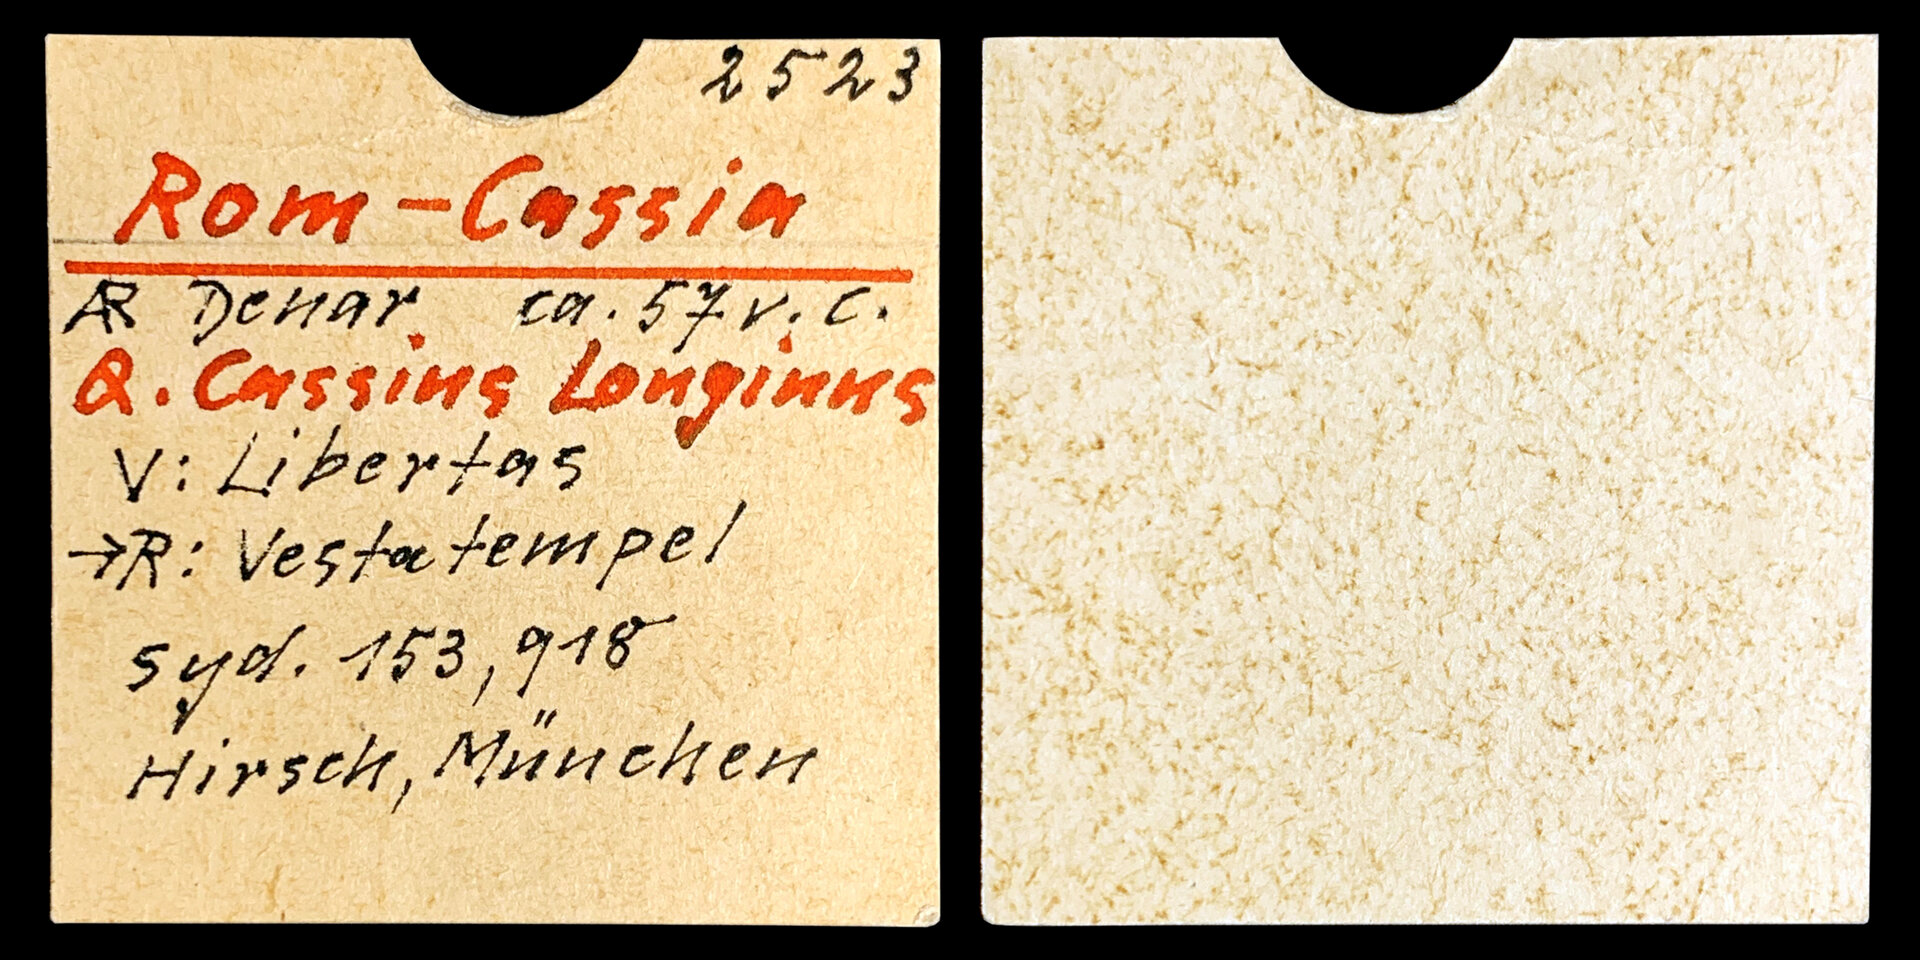 2523
Rom-Cassia
AR Denar ca. 57 v. C.
Q. Cassius Longinus
V: Libertas
→R: Vestatempel
syd. 153, 918
Hirsch, München